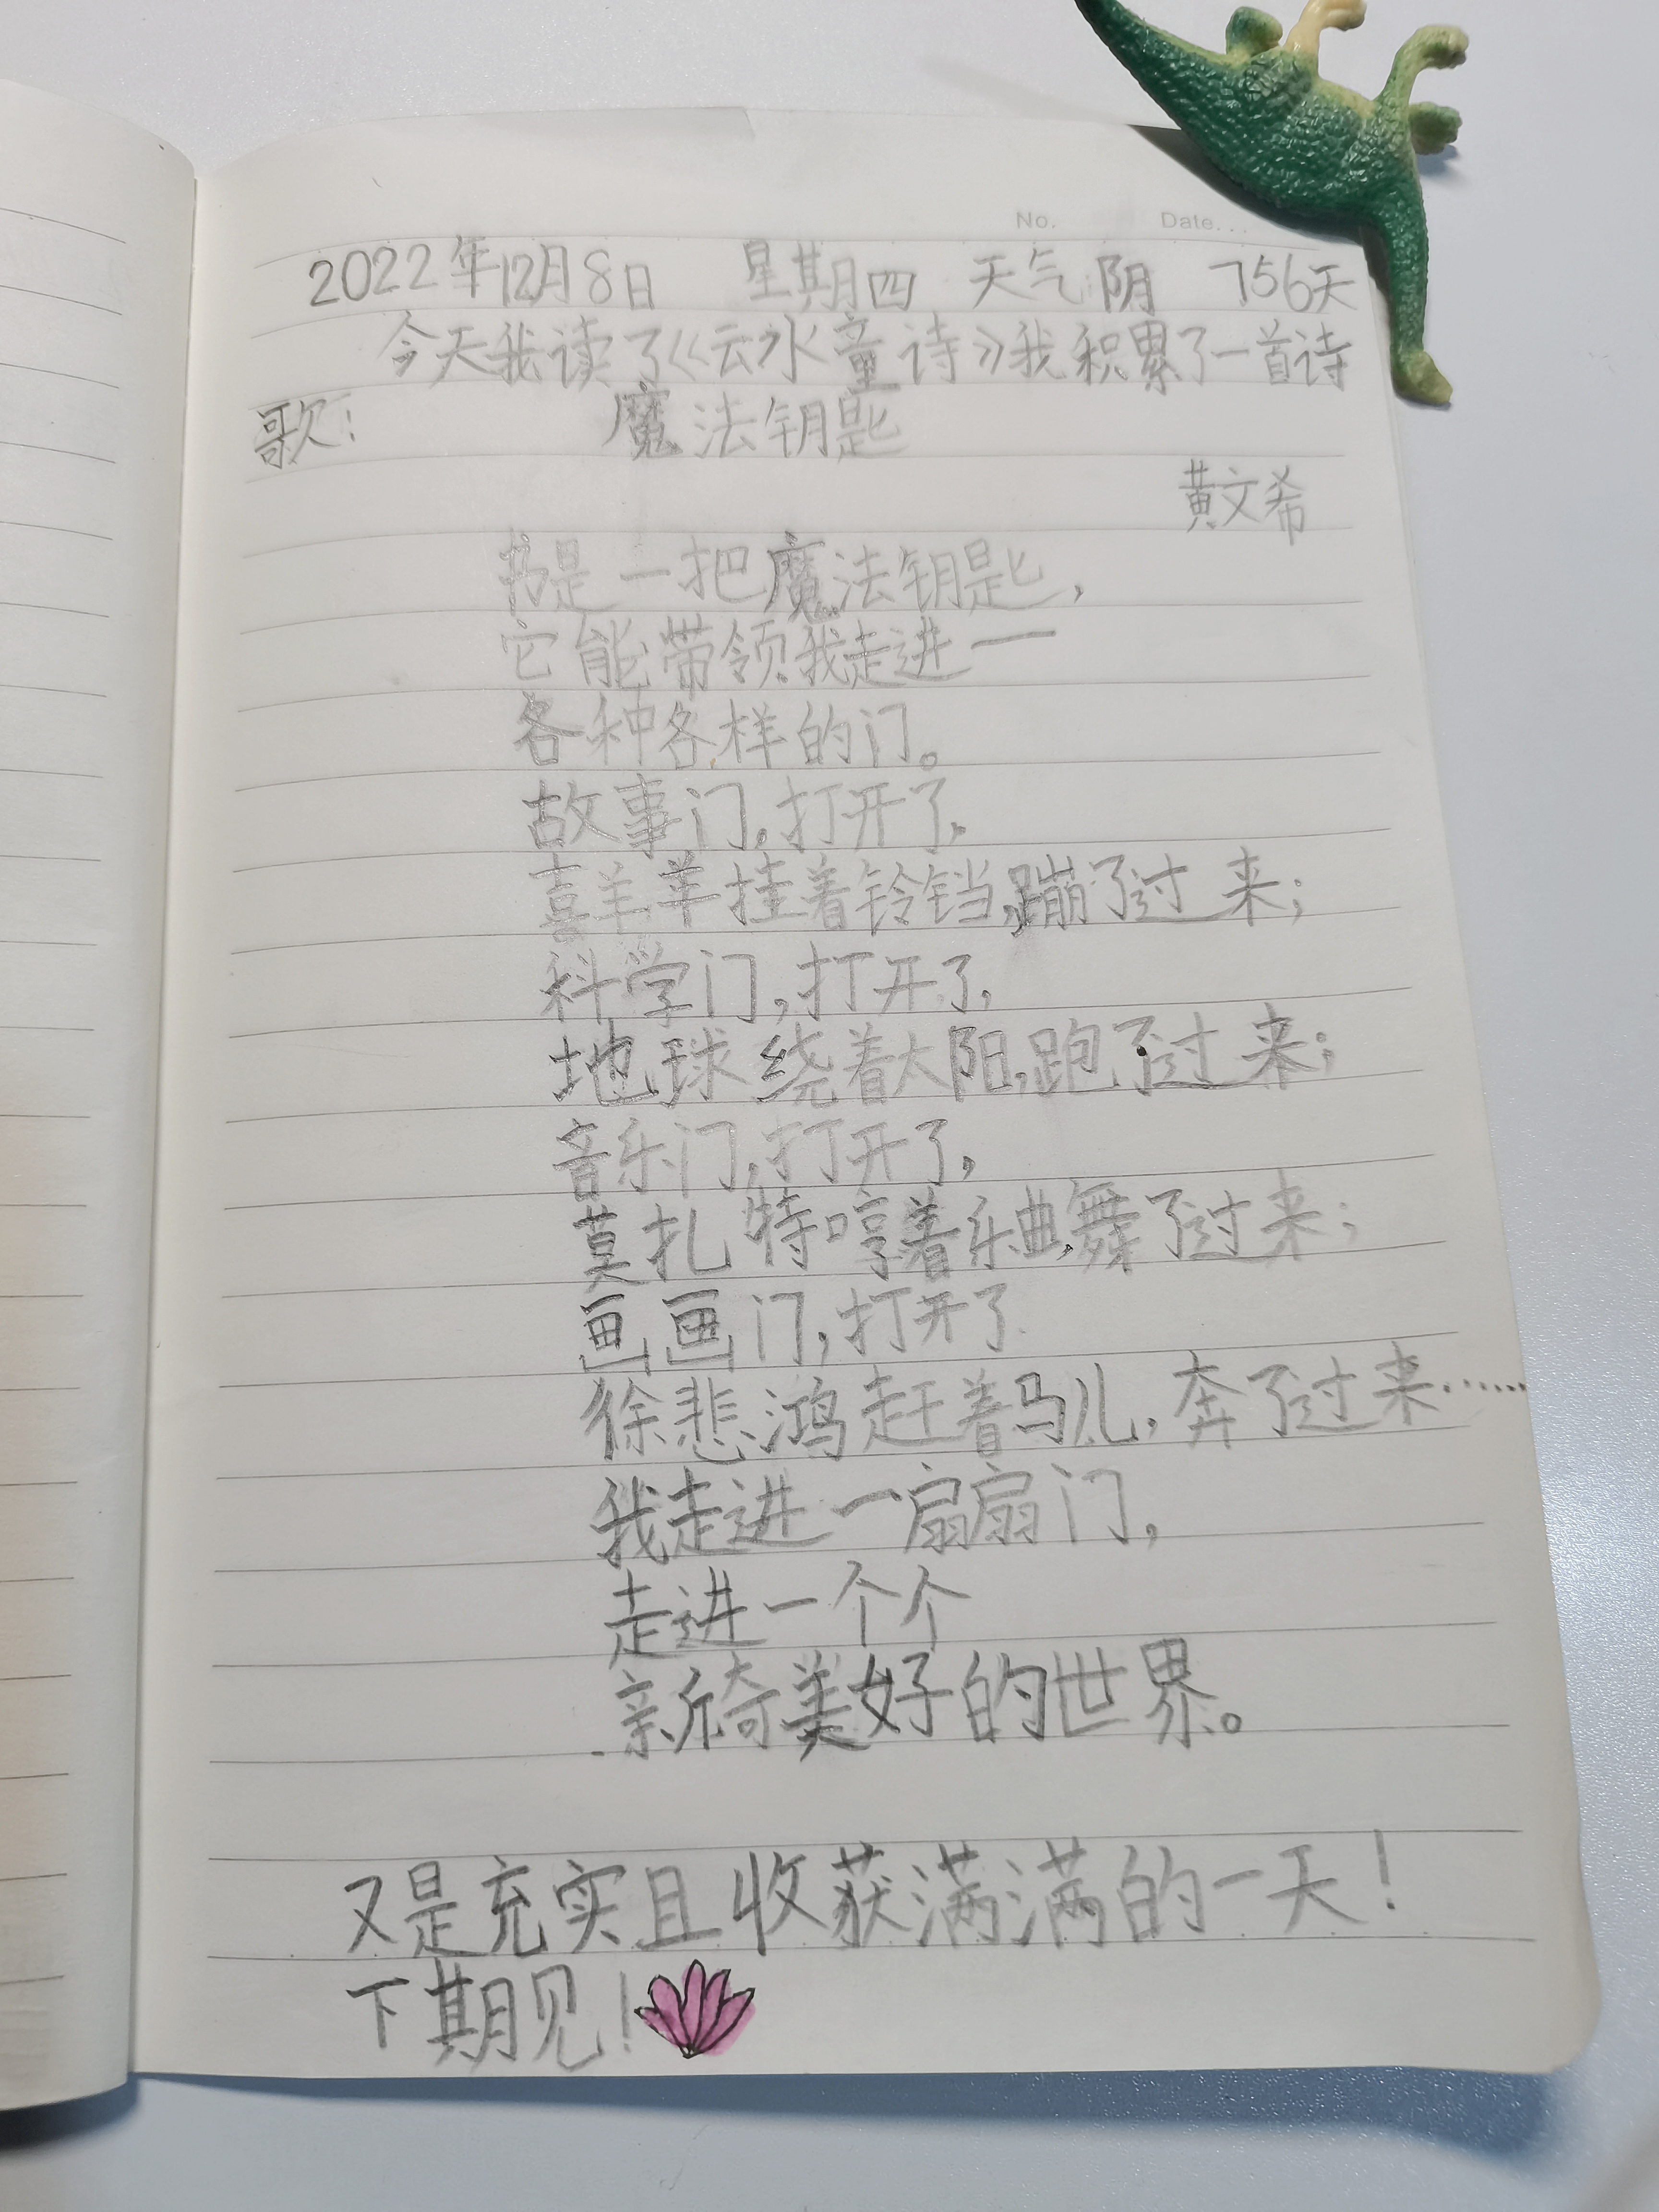 No.
Date...
2022年12月8日 星期四 天气阴 756天
今天我读了《云水童诗》我积累了一首诗
歌: 魔法钥匙
黄文希
书是一把魔法钥匙,
它能带领我走进一
各种各样的门。
故事门,打开了,
喜羊羊挂着铃铛,蹦了过来;
科学门,打开了,
地球绕着太阳,跑了过来;
音乐门,打开了,
莫扎特哼着乐曲,舞了过来;
画画门,打开了.
徐悲鸿赶着马儿,奔了过来……
我走进一扇扇门,
走进一个个
新奇美好的世界。
又是充实且收获满满的一天!
下期见!